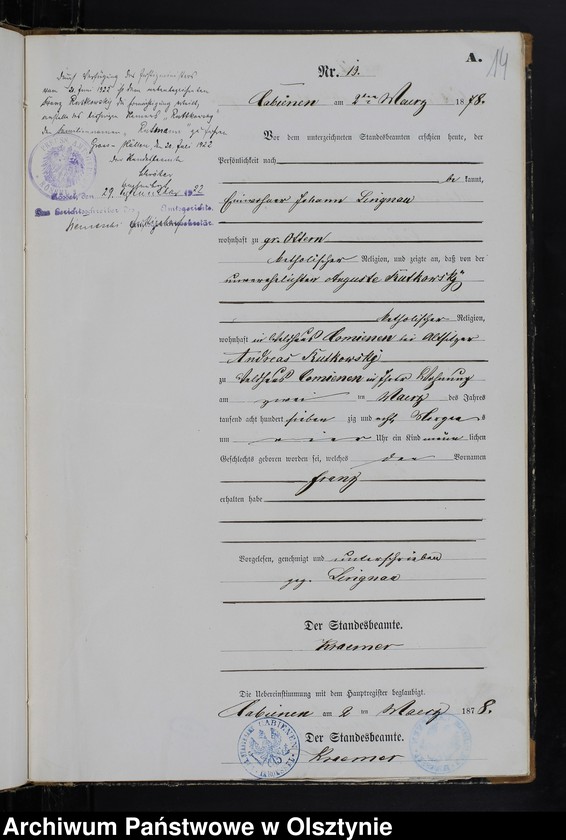 A.
14
Nr. 13.
Cabienen am 2ten Maerz 1878.
Vor dem unterzeichneten Standesbeamten erschien heute, der
Persönlichkeit nach
be kannt,
Einwohner Johann Lingnau
wohnhaft zu gr. Ottern
katholischer Religion, und zeigte an, daß von der
unverehelichten Auguste Rutkowsky
katholischer Religion,
wohnhaft in Komienen bei Altsitzer
Andreas Rutkowsky
zu Komienen in Wohnung
am zwei ten Maerz des Jahres
tausend acht hundert sieben zig und acht, Morgens
um vier Uhr ein Kind männ lichen
Geschlechts geboren worden sei, welches den Vornamen
Franz
erhalten habe
Vorgelesen, genehmigt und unterschrieben
gez. Lingnau
Der Standesbeamte.
Kraemer
Die Uebereinstimmung mit dem Hauptregister beglaubigt.
Cabienen am 2 ten Maerz 1878.
Der Standesbeamte.
Kraemer
CABIENEN
Durch Verfügung des Justizministers
vom Juni 1922 ist dem
Franz Rutkowsky die Ermächtigung erteilt,
anstelle des bisherigen Namens „Rutkowsky"
den Familiennamen zu führen
den 20. Juli 1922
Der Standesbeamte
den 29. September 1922
Amtsgerichts.
Archiwum Państwowe w Olsztynie